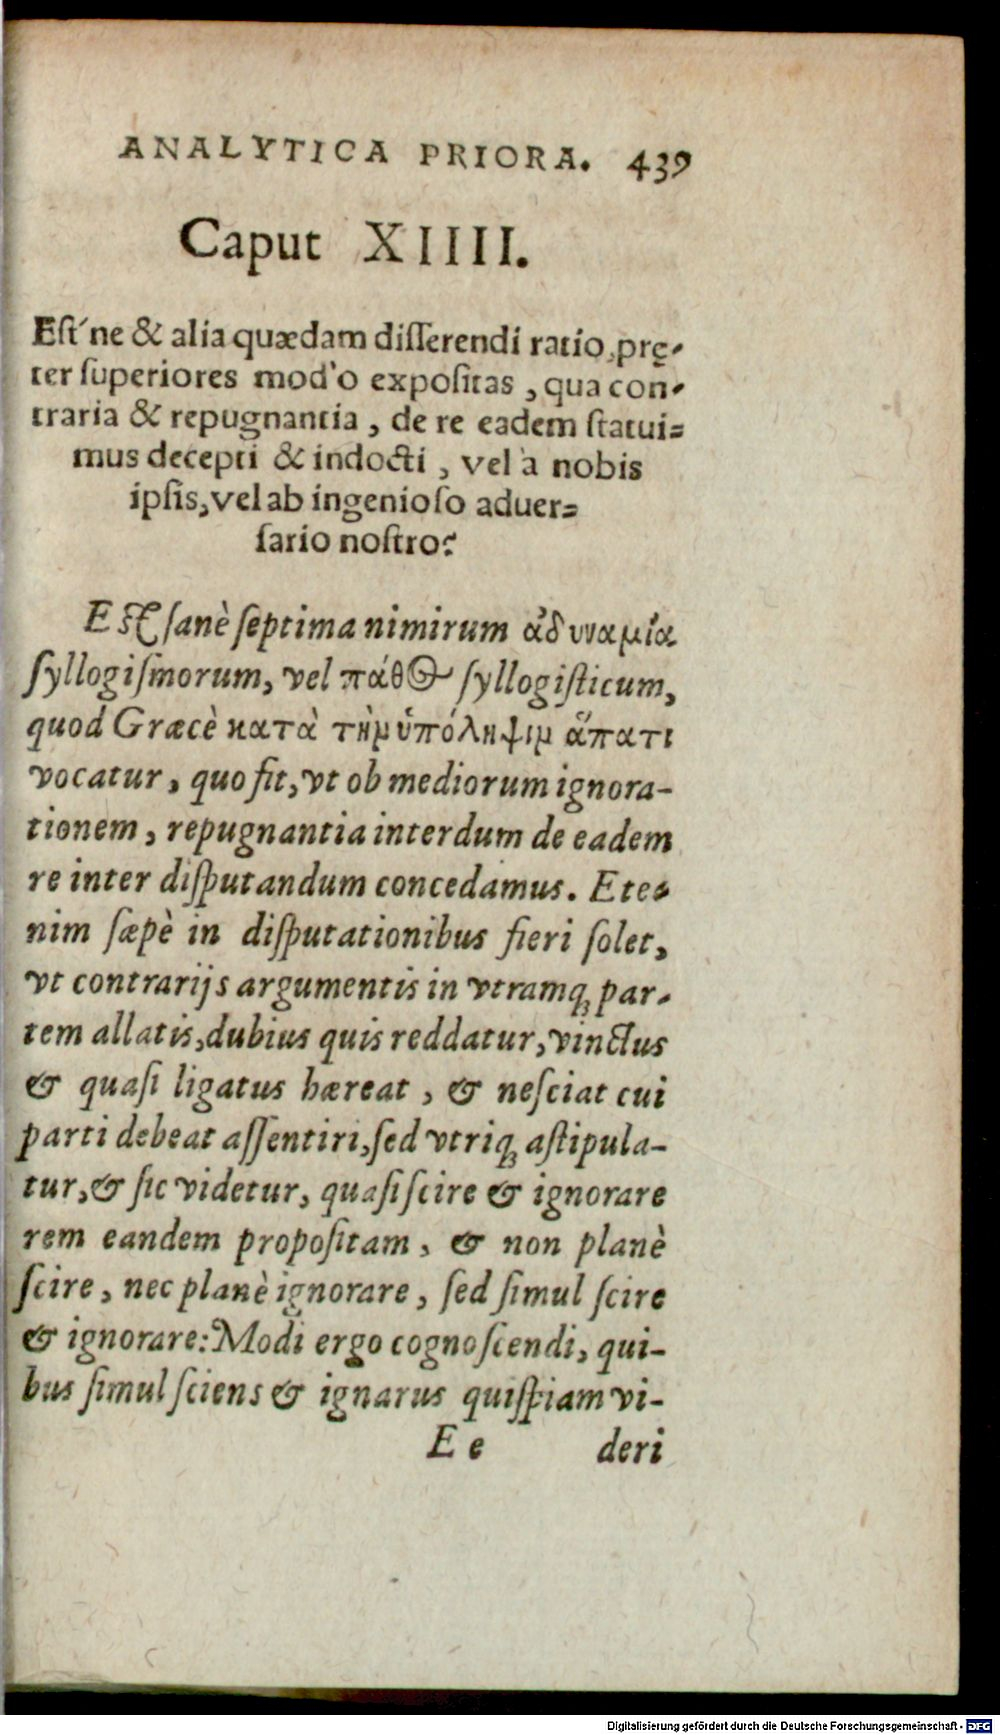 ANALYTICA PRIORA. 439
Caput XIIII.
Est´ne & alia quædam disserendi ratio, prę-
ter superiores mod`o expositas, qua con-
traria & repugnantia, de re eadem statui=
mus decepti & indocti, vel à nobis
ipsis, vel ab ingenioso aduer=
sario nostro?
Est sanè septima nimirum ἀδυναμία
syllogismorum, vel πάθος syllogisticum,
quod Græcè κατὰ τὴν ὑπόληψιν ἅπατι
vocatur, quo fit, vt ob mediorum ignora-
tionem, repugnantia interdum de eadem
re inter disputandum concedamus. Ete-
nim sæpè in disputationibus fieri solet,
vt contrarijs argumentis in vtramq; par-
tem allatis, dubius quis reddatur, vinctus
& quasi ligatus hæreat, & nesciat cui
parti debeat assentiri, sed vtriq; astipula-
tur, & sic videtur, quasi scire & ignorare
rem eandem propositam, & non planè
scire, nec planè ignorare, sed simul scire
& ignorare: Modi ergo cognoscendi, qui-
bus simul sciens & ignarus quispiam vi-
Ee deri
Digitalisierung gefördert durch die Deutsche Forschungsgemeinschaft - DFG